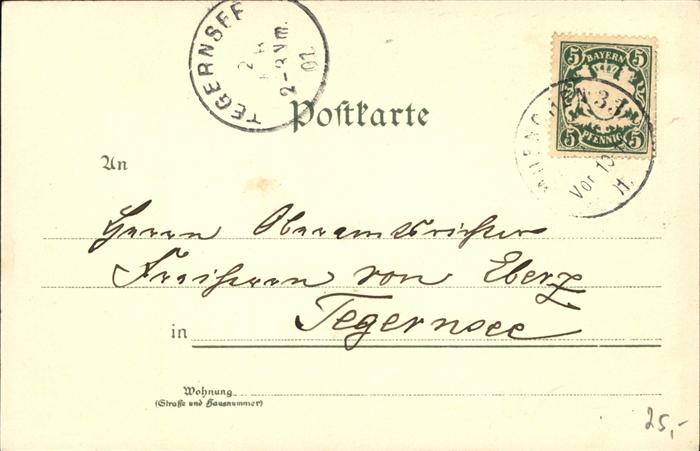 TEGERNSEE
2-3Nm.
02
BAYERN
5 5
5 PFENNIG 5
MUENCHEN 33
Vor 10
Postkarte
An
Herrn Oberamtsrichter
Freiherrn von Eberz
in Tegernsee
Wohnung
(Straße und Hausnummer)
25,-